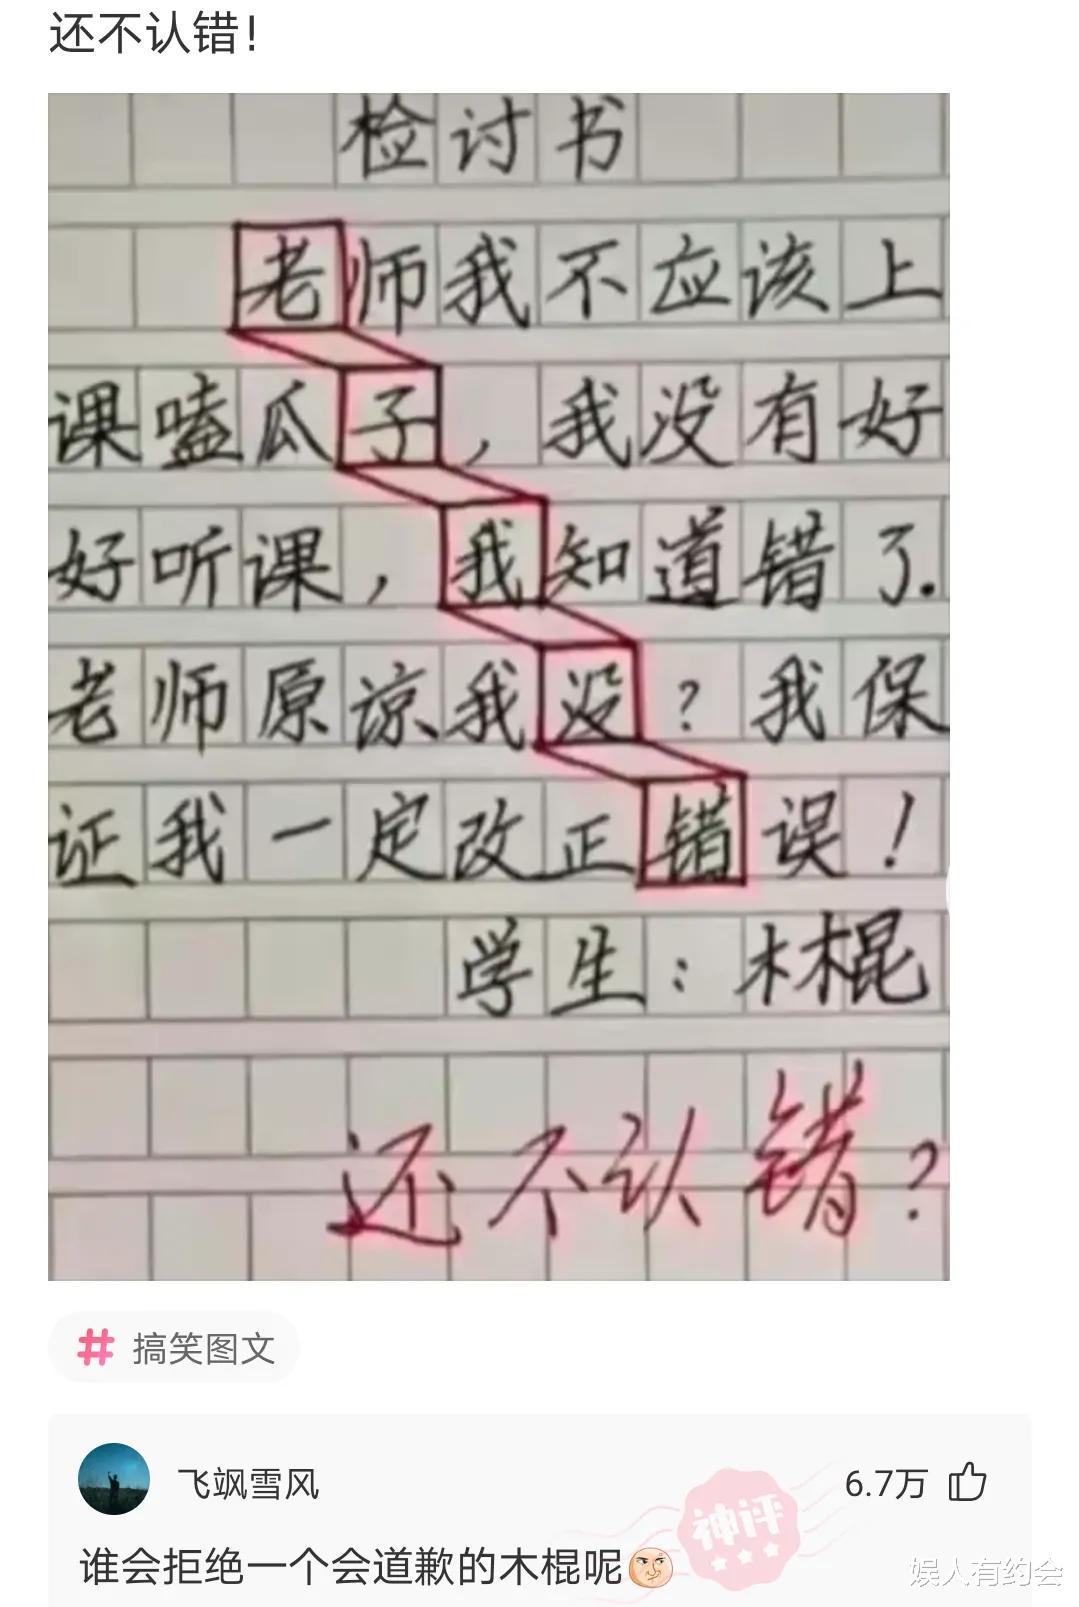 还不认错！
检讨书
老师我不应该上
课嗑瓜子，我没有好
好听课，我知道错了.
老师原谅我没？我保
证我一定改正错误！
学生：木棍
还不认错？
# 搞笑图文
飞飒雪风
6.7万
神评
谁会拒绝一个会道歉的木棍呢
娱人有约会